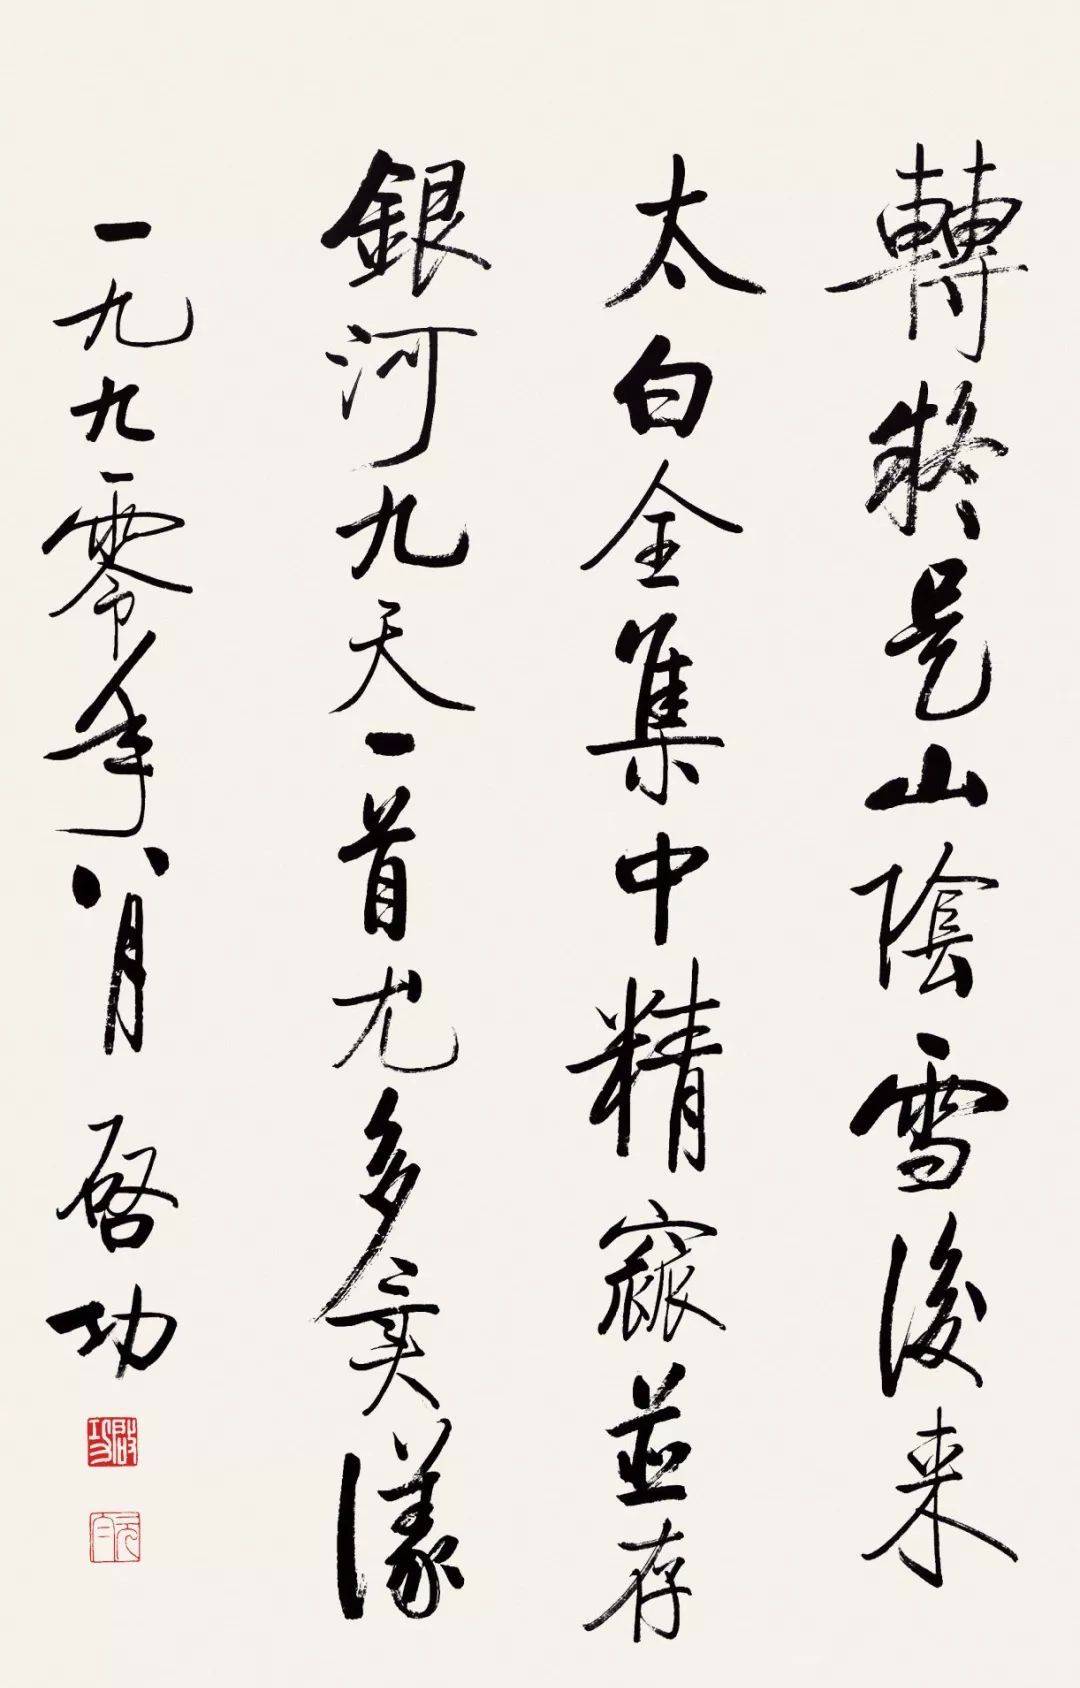 轉疑是山陰雪後来
太白全集中精窳並存
銀河九天一首尤多異議
一九九零年八月 啓功
啟功
元白